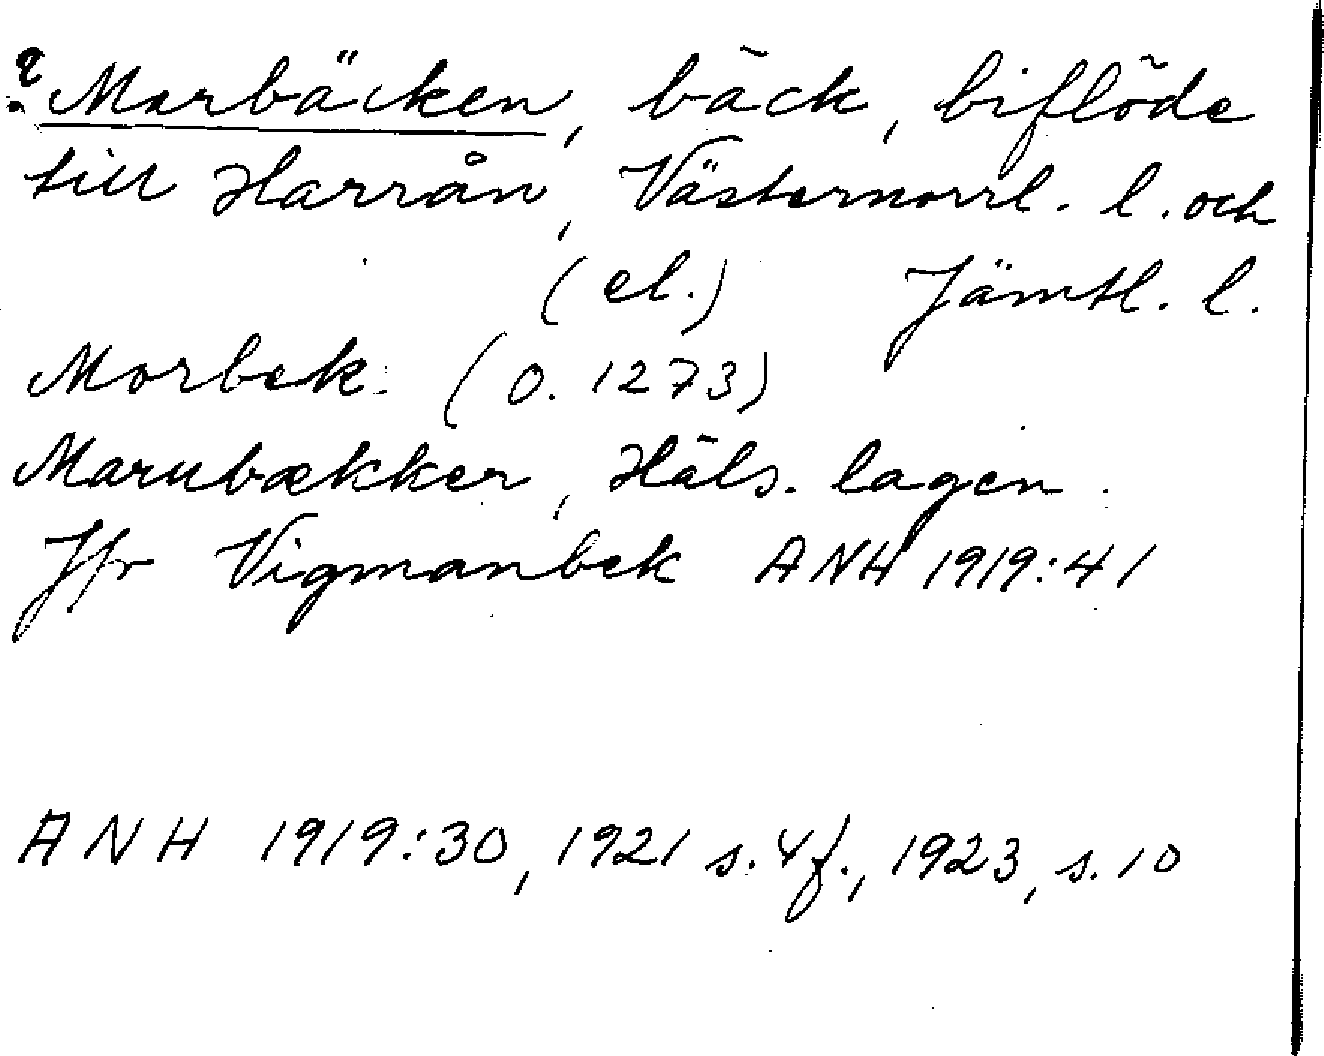 ? Marbäcken, bäck, biflöde
till Harrån, Västernorrl. l. och
(el.) Jämtl. l.
Morbek. (o. 1273)
Marubækker, Häls. lagen.
Jfr Vigmanbek ANH 1919:41
ANH 1919:30, 1921 s. 4f., 1923, s. 10